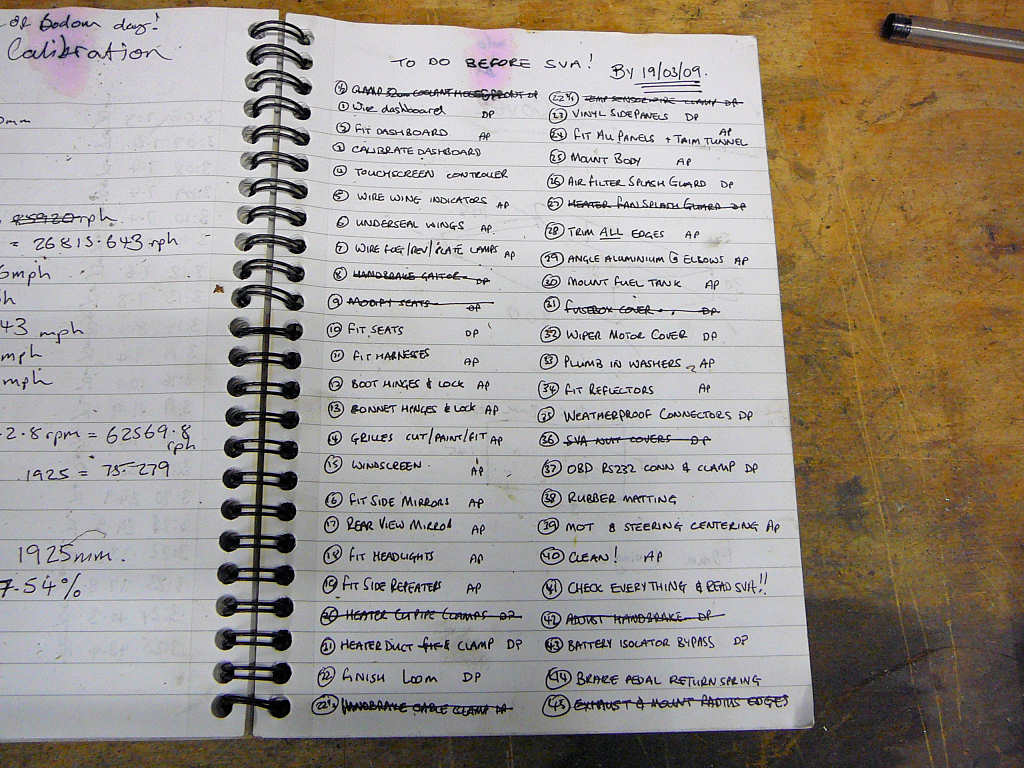 day!
Calibration
rph
= 26815.643 rph
mph
43 mph
mph
mph
2.8 rpm = 62569.8
rph
1925 = 75.279
1925mm.
7.54%
TO DO BEFORE SVA!
BY 19/03/09.
① WIRE DASHBOARD DP
② FIT DASHBOARD AP
③ CALIBRATE DASHBOARD
④ TOUCHSCREEN CONTROLLER
⑤ WIRE WING INDICATORS AP
⑥ UNDERSEAL WINGS AP.
⑦ WIRE FOG/REV/PLATE LAMPS AP
⑧ HANDBRAKE GAITOR DP
⑨ MODIFY SEATS DP
⑩ FIT SEATS DP
⑪ FIT HARNESSES AP
⑫ BOOT HINGES & LOCK AP
⑬ BONNET HINGES & LOCK AP
⑭ GRILLES CUT/PAINT/FIT AP
⑮ WINDSCREEN. AP
⑯ FIT SIDE MIRRORS AP
⑰ REAR VIEW MIRROR AP
⑱ FIT HEADLIGHTS AP
⑲ FIT SIDE REPEATERS AP
⑳ HEATER CU PIPE CLAMPS DP
㉑ HEATER DUCT CLAMP DP
㉒ FINISH LOOM DP
22½ HANDBRAKE CABLE CLAMP DP
22¾ TEMP SENSOR WIRE CLAMP DP
㉓ VINYL SIDEPANELS DP
㉔ FIT ALL PANELS + TRIM TUNNEL AP
㉕ MOUNT BODY AP
㉖ AIR FILTER SPLASH GUARD DP
㉗ HEATER FAN SPLASH GUARD DP
㉘ TRIM ALL EDGES AP
㉙ ANGLE ALUMINIUM @ ELBOWS AP
㉚ MOUNT FUEL TANK AP
㉛ FUSEBOX COVER DP
㉜ WIPER MOTOR COVER DP
㉝ PLUMB IN WASHERS AP
㉞ FIT REFLECTORS AP
㉟ WEATHERPROOF CONNECTORS DP
㊱ SVA NUT COVERS DP
㊲ OBD RS232 CONN & CLAMP DP
㊳ RUBBER MATTING
㊴ MOT & STEERING CENTERING AP
㊵ CLEAN! AP
㊶ CHECK EVERYTHING & READ SVA!!
㊷ ADJUST HANDBRAKE DP
㊸ BATTERY ISOLATOR BYPASS DP
㊹ BRAKE PEDAL RETURN SPRING
㊺ EXHAUST & MOUNT RADIUS EDGES